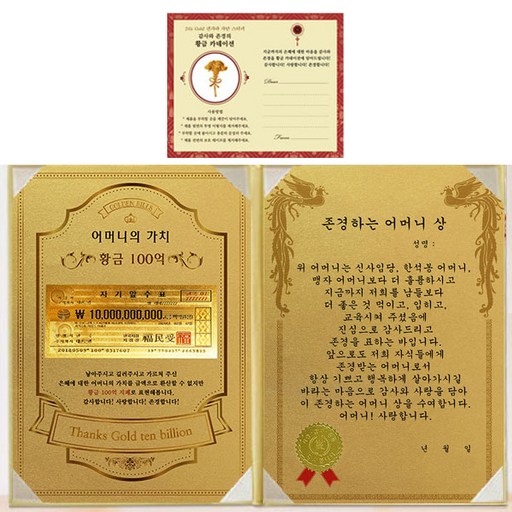 감사와 존경의
황금 카네이션
사용방법
지금까지의 은혜에 대한 마음을 감사와
존경을 황금 카네이션에 담아드립니다!
감사합니다! 사랑합니다! 존경합니다!
Dear
From
GOLDEN BILLS
어머니의 가치
황금 100억
자기앞수표
₩ 10,000,000,000
낳아주시고 길러주시고 가르쳐 주신
은혜에 대한 어머니의 가치를 금액으로 환산할 수 없지만
황금 100억 지폐로 표현해봅니다.
감사합니다! 사랑합니다! 존경합니다!
Thanks Gold ten billion
존경하는 어머니 상
성명 :
위 어머니는 신사임당, 한석봉 어머니,
맹자 어머니보다 더 훌륭하시고
지금까지 저희를 남들보다
더 좋은 것 먹이고, 입히고,
교육시켜 주셨음에
진심으로 감사드리고
존경을 표하는 바입니다.
앞으로도 저희 자식들에게
존경받는 어머니로서
항상 기쁘고 행복하게 살아가시길
바라는 마음으로 감사와 사랑을 담아
이 존경하는 어머니 상을 수여합니다.
어머니! 사랑합니다.
년 월 일